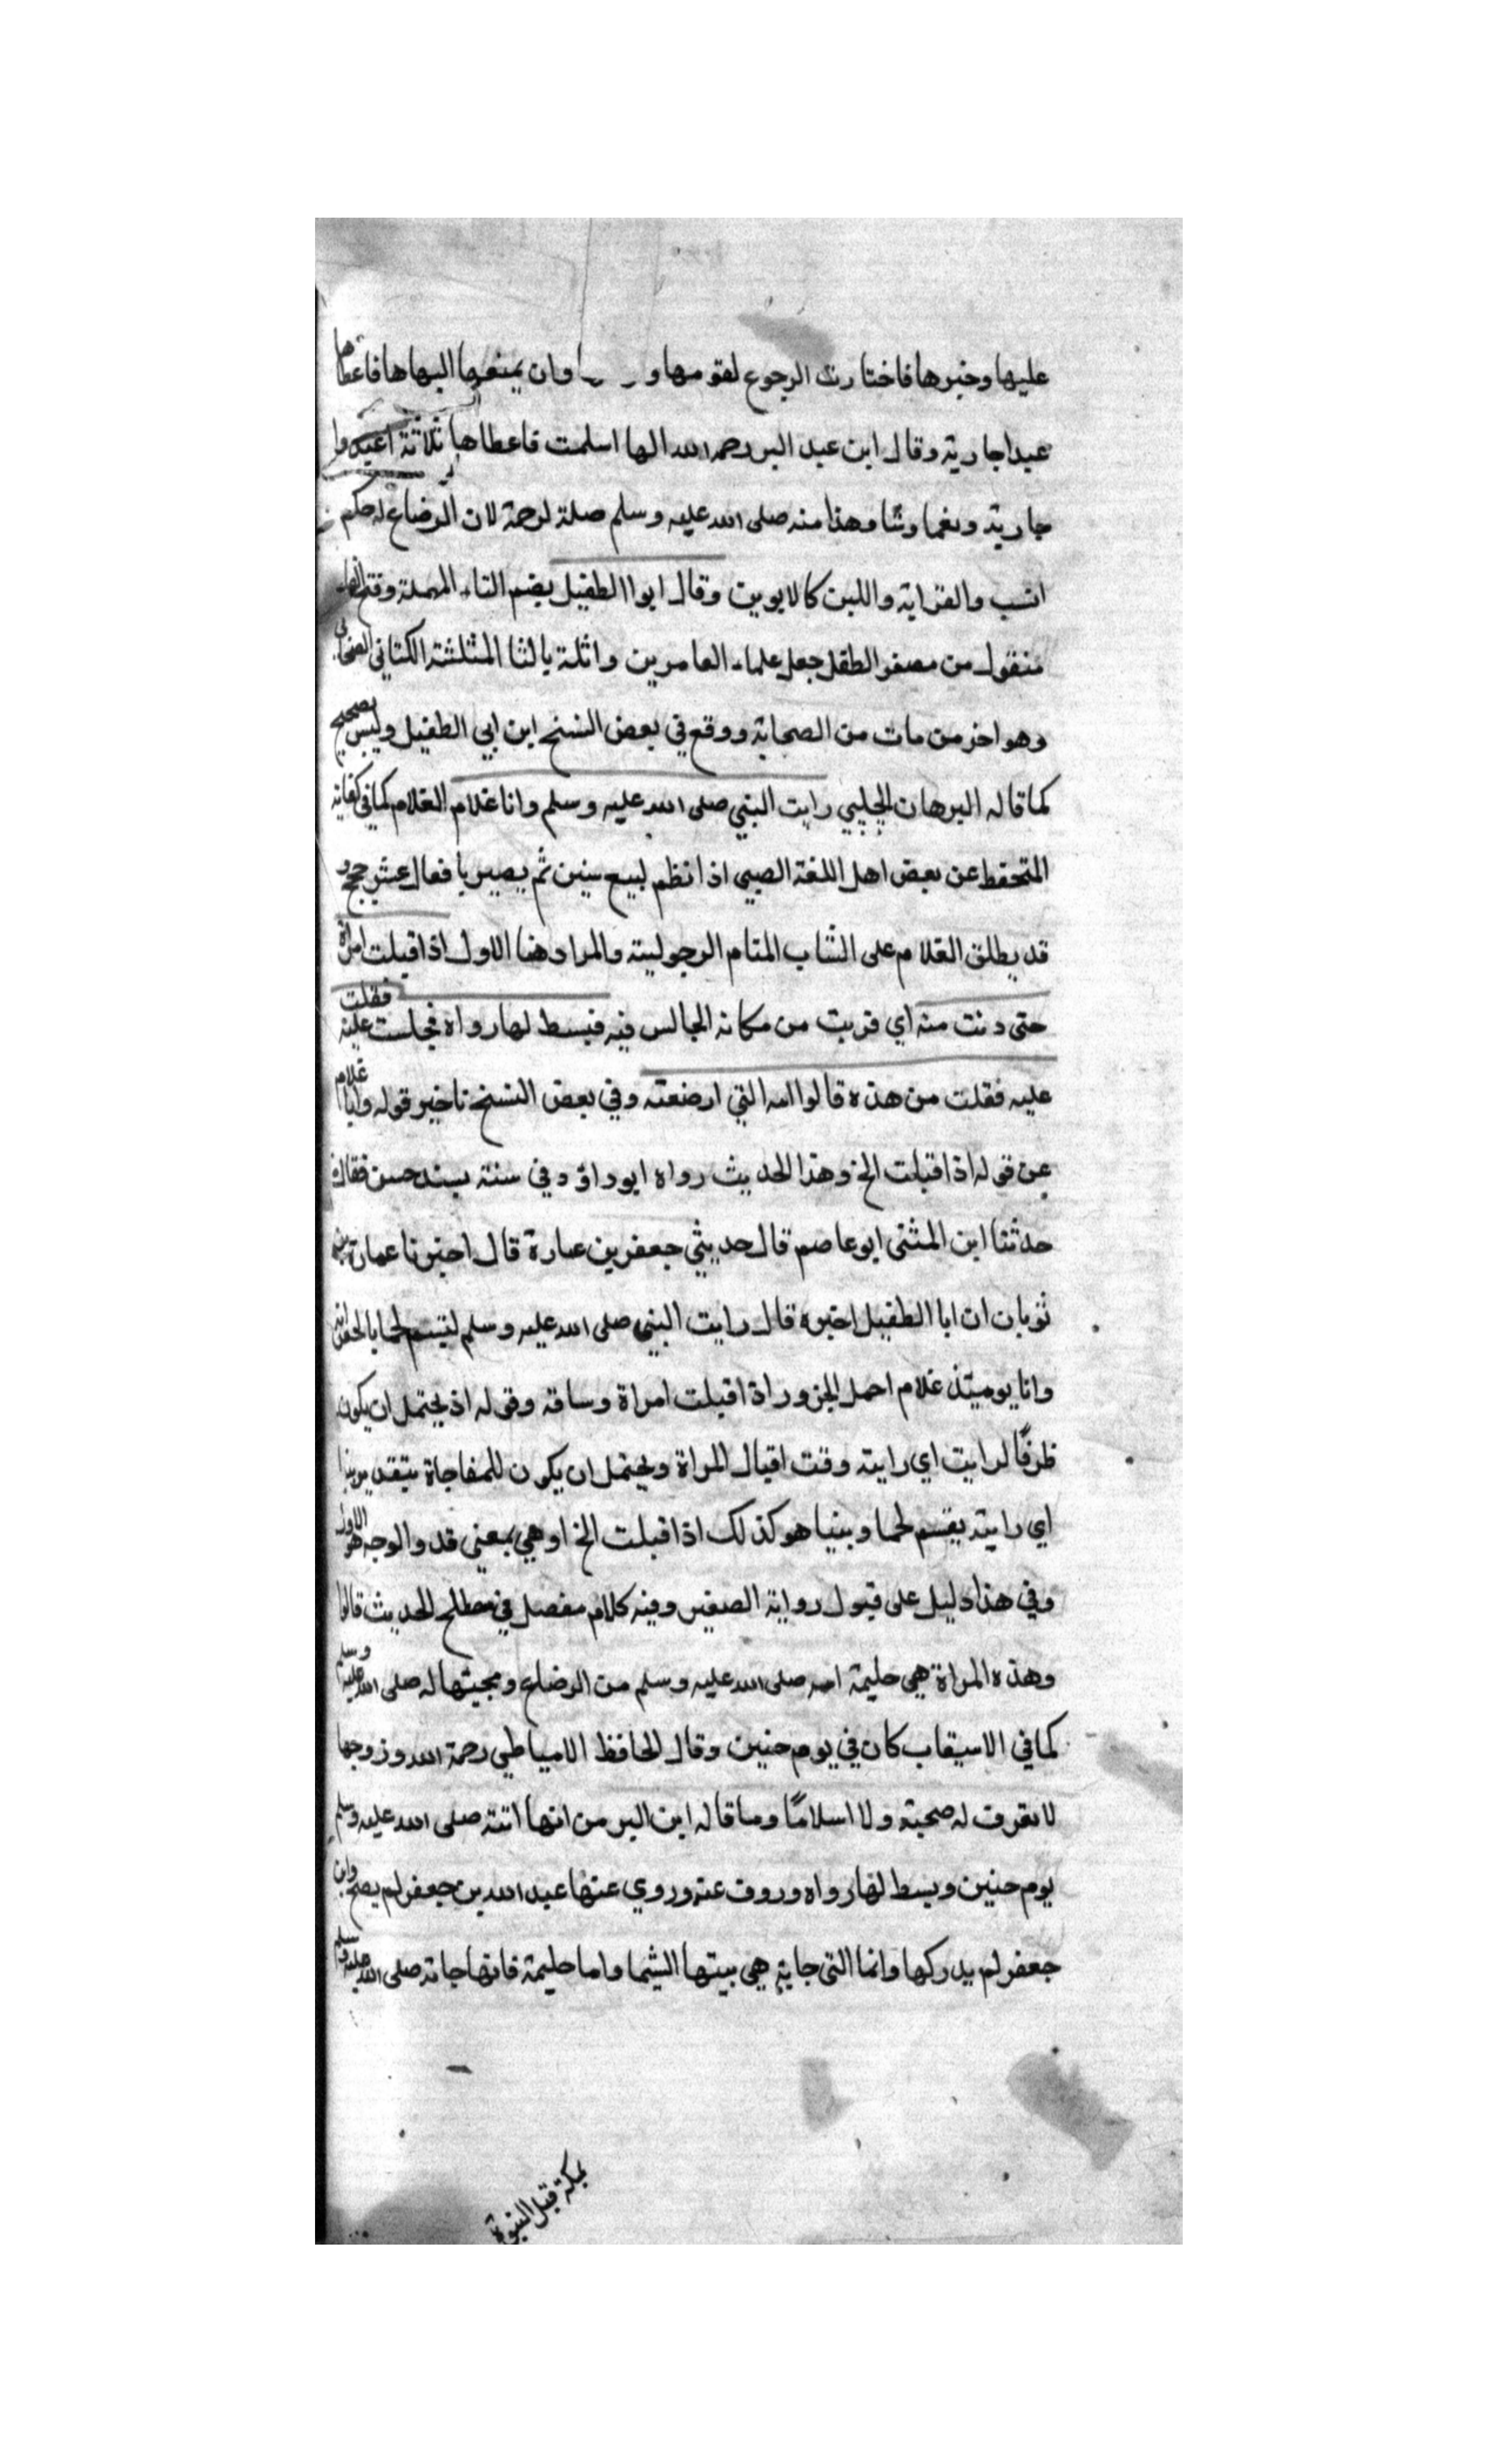 عليها وخيرها فاختارت الرجوع لقومها و وان يمنعها اليها ها فاعطاها
عبدا جارية وقال ابن عبد البر رحمه الله انها اسلمت فاعطاها ثلاثة اعبد وا
جارية ونعما وشا وهذا منه صلى الله عليه وسلم صلة لرحمة لان الرضاع له حكم
انسب والقراية واللبن كالابوين وقال ابوا الطفيل بضم التاء المهملة وفتح الفاء
منقول من مصغر الطفل جعل علماء العامرين واثلة بالثا المثلثة الكناني الصحابي
وهو اخر من مات من الصحابة ووقع في بعض النسخ ابن ابي الطفيل وليس بصحيح
كما قاله البرهان الحلبي رايت النبي صلى الله عليه وسلم وانا غلام الغلام كما في كفاية
المتحفظ عن بعض اهل اللغة الصبي اذا نظم لسبع سنين ثم يصير يافعا لعشر حجج و
قد يطلق الغلام على الشاب المتام الرجولية والمراد هنا الاول اذ اقبلت امراة
حتى دنت منه اي قربت من مكانه الجالس فيه فبسط لها رواه فجلست عليه فقلت
عليه فقلت من هذه قالوا امه التي ارضعته وفي بعض النسخ تاخير قوله وانا غلام
عن قوله اذ اقبلت الخ وهذا الحديث رواه ابو داود في سننه بسند حسن فقال
حدثنا ابن المثنى ابو عاصم قال حديثي جعفر بن عمارة قال اخبرنا عمارة بن
ثوبان ان ابا الطفيل اخبره قال رايت النبي صلى الله عليه وسلم ليقسم لحما بالجعرانة
وانا يوميئذ غلام احمل الجزور اذ اقبلت امراة وساقه وقوله اذ يحتمل ان يكون
ظرفًا لرايت اي رايته وقت اقبال المراة ويحتمل ان يكون للمفاجاة بتقدير بينا
اي رايته يقسم لحما وبينيا هو كذلك اذ اقبلت الخ او هي بمعنى قد والوجه هو الاول
وفي هذا دليل على قبول رواية الصغير وفيه كلام مفصل في مصطلح الحديث قالوا
وهذه المراة هي حليمة امه صلى الله عليه وسلم من الرضاع ومجيئها له صلى الله عليه وسلم
كما في الاسيقاب كان في يوم حنين وقال الحافظ الامياطي رحمة الله وزوجها
لا تعرف له صحبة ولا اسلامًا وما قاله ابن البر من انها اتته صلى الله عليه وسلم
يوم حنين وبسط لها رواه وروت عنه وروي عنها عبد الله بن جعفر لم يصح وابن
جعفر لم يدركها وانما التي جاية هي بيتها الشيما واما حليمة فانها جاته صلى الله عليه وسلم
بمكة قبل النبوة